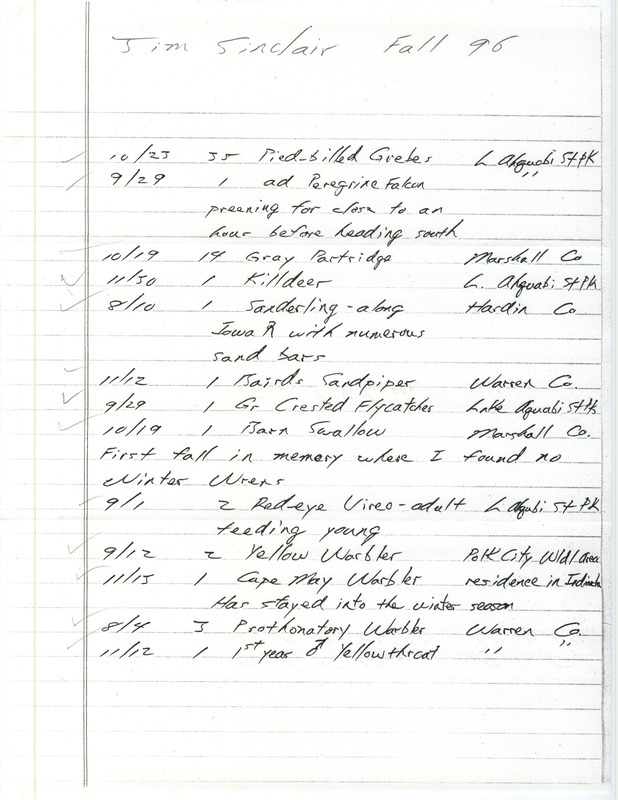 Jim Sinclair Fall 96
10/23 35 Pied-billed Grebes L Ahquabi St PK
9/29 1 ad Peregrine Falcon "
preening for close to an
hour before heading south
10/19 14 Gray Partridge Marshall Co
11/30 1 Killdeer L. Ahquabi St PK
8/10 1 Sanderling - along Hardin Co
Iowa R with numerous
sand bars
11/12 1 Bairds Sandpiper Warren Co.
9/29 1 Gr Crested Flycatcher Lake Aquabi St Pk
10/19 1 Barn Swallow Marshall Co.
First fall in memory where I found no
Winter Wrens
9/1 2 Red-eye Vireo - adult L Ahqubi St PK
feeding young
9/12 2 Yellow Warbler Polk City Wldl Area
11/15 1 Cape May Warbler residence in
Has stayed into the winter season
8/4 3 Prothonatory Warbler Warren Co.
11/12 1 1st year ♂ Yellowthroat " "